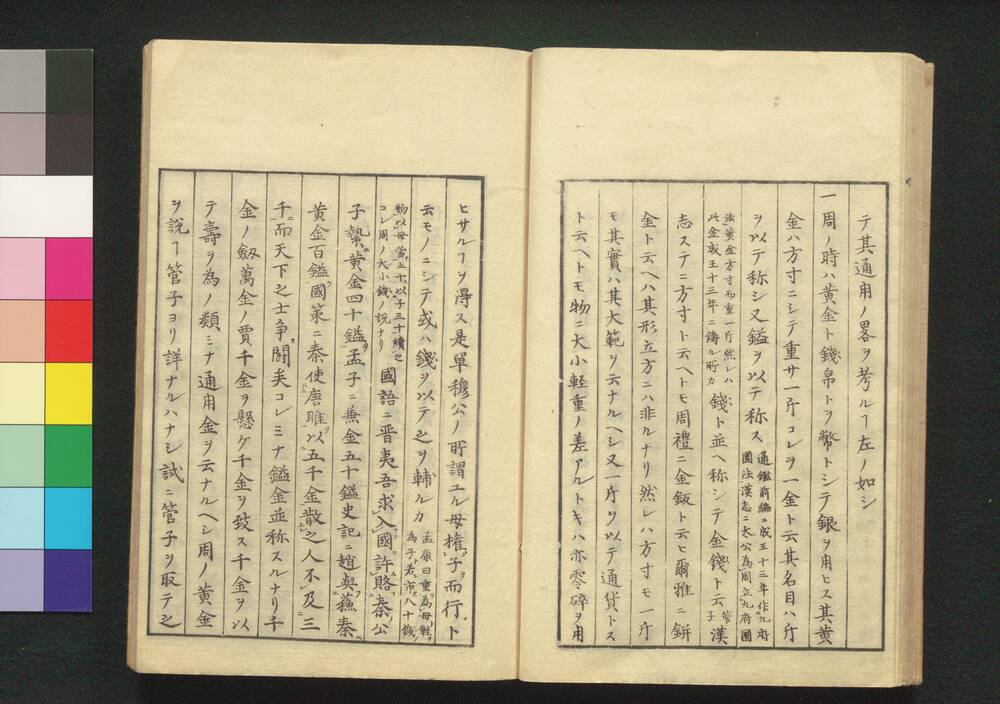 テ其通用ノ畧ヲ考ルヿ左ノ如シ
一周ノ時ハ黄金ト錢帛トヲ幣トシテ銀ヲ用ヒス其黄
金ハ方寸ニシテ重サ一斤コレヲ一金ト云其名目ハ斤
ヲ以テ称シ又鎰ヲ以テ称ス
通鑑前編ニ成王十三年作九府
圜法漢志ニ太公為周立九府圜
法黄金方寸而重一斤然レハ
此金成王十三年ニ鋳ル所カ
錢ト並ヘ称シテ金錢ト云
漢
志ステニ方寸ト云ヘトモ周禮ニ金鈑ト云ヒ爾雅ニ鉼
金ト云ヘハ其形立方ニハ非ルナリ然レハ方寸モ一斤
モ其實ハ其大範ヲ云ナルヘシ又一斤ヲ以テ通貨トス
ト云ヘトモ物ニ大小軽重ノ差アルトキハ亦零碎ヲ用
ヒサルヿヲ得ス是單穆公ノ所謂ユル母權子而行ト
云モノニシテ或ハ錢ヲ以テ之ヲ輔ルカ
孟康曰重為母軽
為子若市八十錢
物以母當五十以子三十續之
コレ周ノ大小錢ノ説ナリ
國語ニ晋夷吾求入國許賂秦公
子縶黄金四十鎰孟子ニ兼金五十鎰史記ニ趙與蘓秦
黄金百鎰國策ニ秦使唐雎以五千金散之人不及三
千而天下之士争鬪矣コレミナ鎰金並称スルナリ千
金ノ劔萬金ノ賈千金ヲ懸ケ千金ヲ致ス千金ヲ以
テ壽ヲ為ノ類ミナ通用金ヲ云ナルヘシ周ノ黄金
ヲ説ヿ管子ヨリ詳ナルハナシ試ニ管子ヲ取テ之